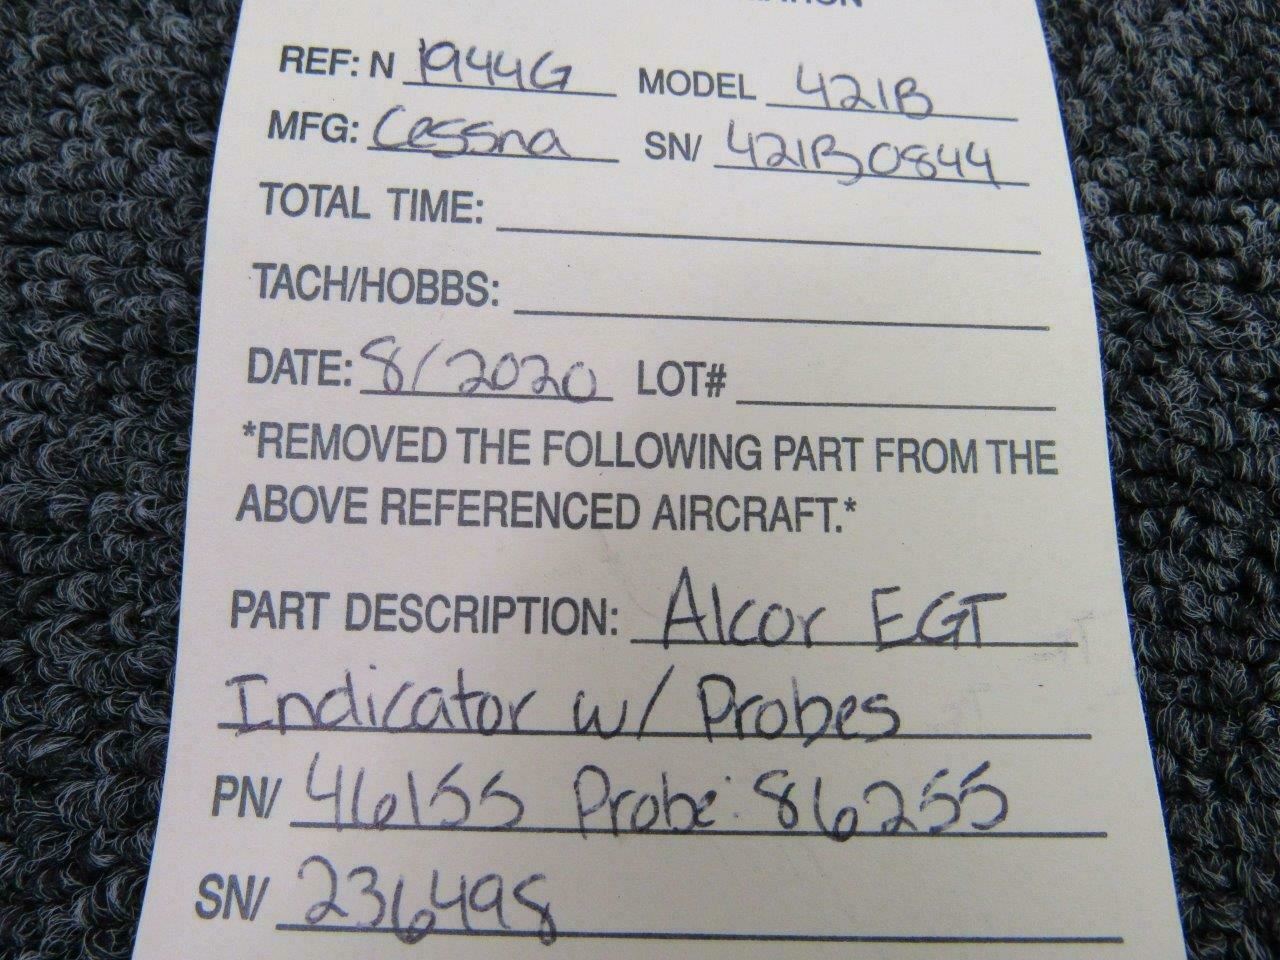 REF: N 1944G MODEL 421B
MFG: Cessna SN/ 421B0844
TOTAL TIME:
TACH/HOBBS:
DATE: 8/2020 LOT#
*REMOVED THE FOLLOWING PART FROM THE
ABOVE REFERENCED AIRCRAFT.*
PART DESCRIPTION: Alcor EGT
Indicator w/ Probes
PN/ 46155 Probe: 86255
SN/ 236498